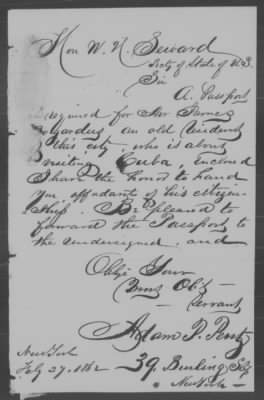 Hon W. H. Seward
Secty of State of U.S.
Sir
A. Passport
required for Mr James
Bogardus, an old resident
of this city, who is about
visiting Cuba, enclosed
I have the honor to hand
you affadants of his citizen-
ship. Be pleased to
forward the Passport to
the undersigned, and
Oblige Your
Servant
Adam P. Pentz
New York
Feby 27, 1862
39 Burling Slip
New York